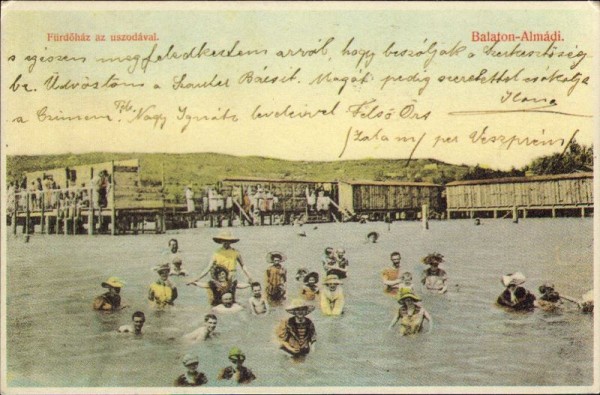 Fürdőház az uszodával.
Balaton-Almádi.
s egiszen megfeledkeztem arról, hogy beszóljak a Szerkesztőség
be. Üdvözlöm a Bácsit. Magát pedig szeretettel csókolja
Ilona
a Czimem: Nagy Ignátz levelivel Felső Örs
/Zala m/ per Veszprém/